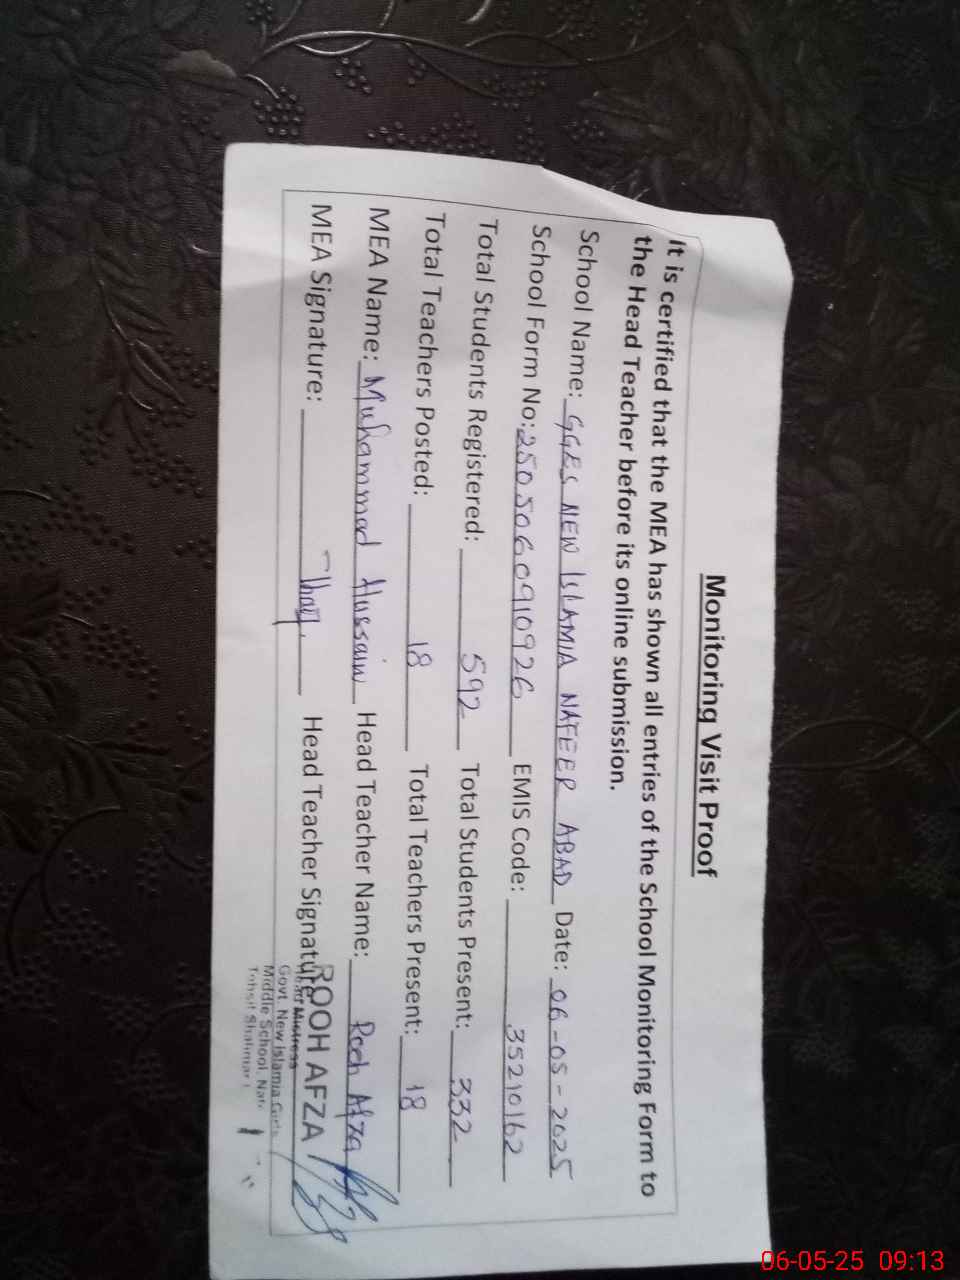 Monitoring Visit Proof
It is certified that the MEA has shown all entries of the School Monitoring Form to
the Head Teacher before its online submission.
School Name: GGES NEW ISLAMIA NAFEER ABAD Date: 06-05-2025
School Form No: 2505060910926 EMIS Code: 35210162
Total Students Registered: 592 Total Students Present: 332
Total Teachers Posted: 18 Total Teachers Present: 18
MEA Name: Muhammad Hussain Head Teacher Name: Rooh Afza
MEA Signature: Head Teacher Signature
ROOH AFZA
Head Mistress
Govt. New Islamia Girls
Middle School, Nat
Tehsil Shalimar
06-05-25 09:13